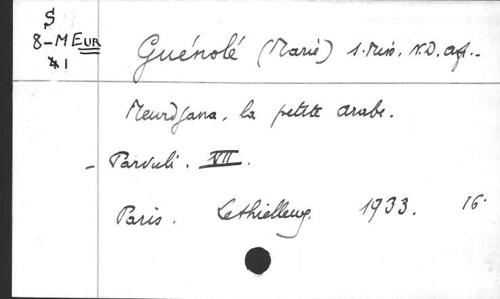 S
8-MEUR
41
Guénolé (Marie) s. Miss. N.D. Afr.-
Meurdjana, la petite arabe.
- Parvuli. VII.
Paris. Lethielleux. 1933. 16.